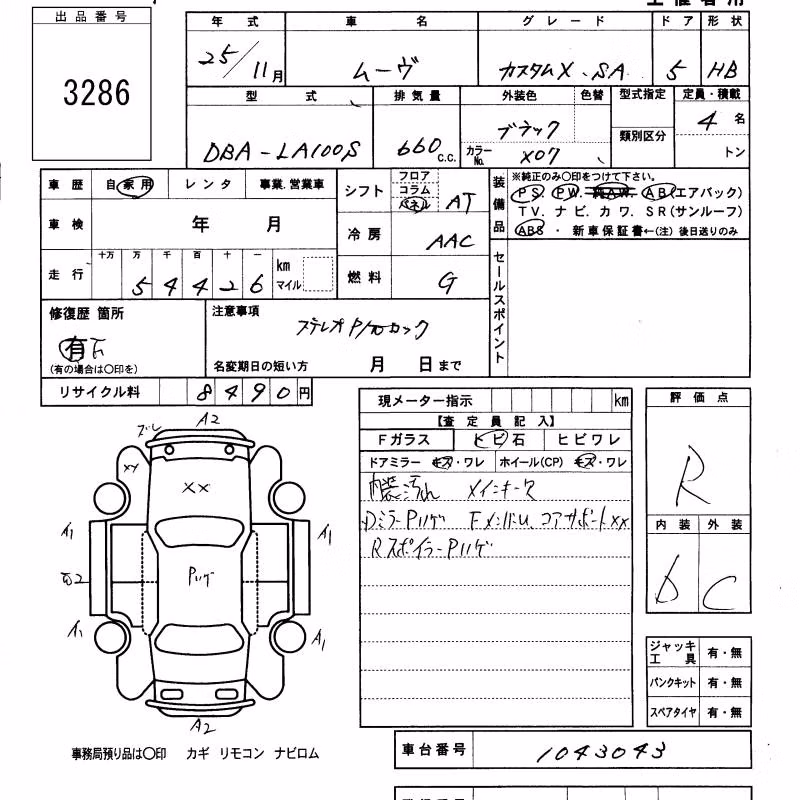 出品番号
3286
年式 車名 グレード ドア 形状
25/11月 ムーヴ カスタムX.SA 5 HB
型式 排気量 外装色 色替 型式指定 定員・積載
DBA-LA100S 660c.c. ブラック 類別区分 4名
カラーNo. X07 トン
車歴 自家用 レンタ 事業.営業車 シフト フロア コラム パネル AT
車検 年 月 冷房 AAC
走行 十万 万 千 百 十 一 km マイル
54426
燃料 G
装備品
※純正のみ○印をつけて下さい。
PS. PW. 純AW. AB(エアバック)
TV.ナビ.カワ.SR(サンルーフ)
ABS ・ 新車保証書←(注) 後日送りのみ
セールスポイント
修復歴 箇所
有
(有の場合は○印を)
注意事項
ステレオP/Wロック
名変期日の短い方 月 日まで
リサイクル料 8490円
現メーター指示 km
【査定員記入】
Fガラス ヒビ石 ヒビワレ
ドアミラー キズ・ワレ ホイール(CP) キズ・ワレ
内装汚れ
DミラーPハゲ コアサポートXX
RスポイラーPハゲ
評価点
R
内装 外装
D C
A2
ズレ
XX
XX
A1 A1
Pハゲ
A1 A1
A2
ジャッキ工具 有・無
パンクキット 有・無
スペアタイヤ 有・無
事務局預り品は○印 カギ リモコン ナビロム
車台番号 1043043